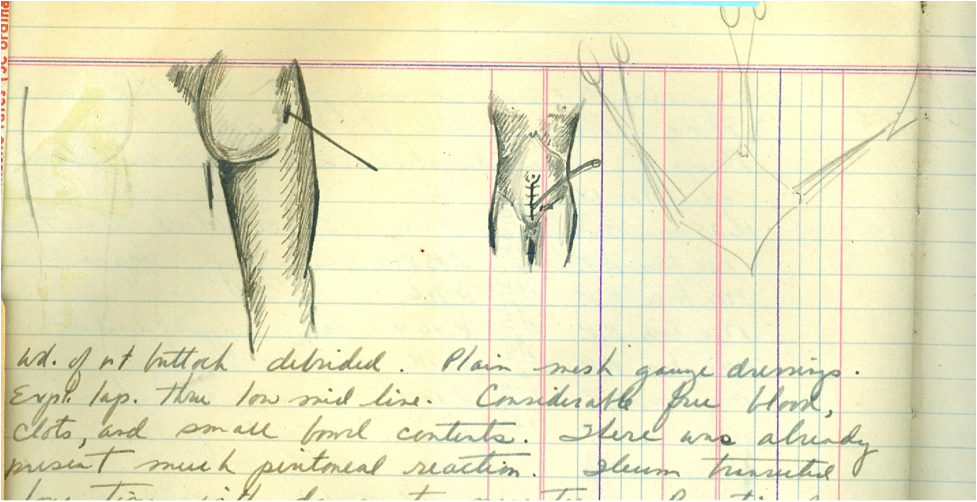 Wd. of rt buttock debrided. Plain mesh gauze dressings.
Expl. lap. thru low mid line. Considerable free blood,
clots, and small bowel contents. There was already
present much peritoneal reaction. Ileum transected